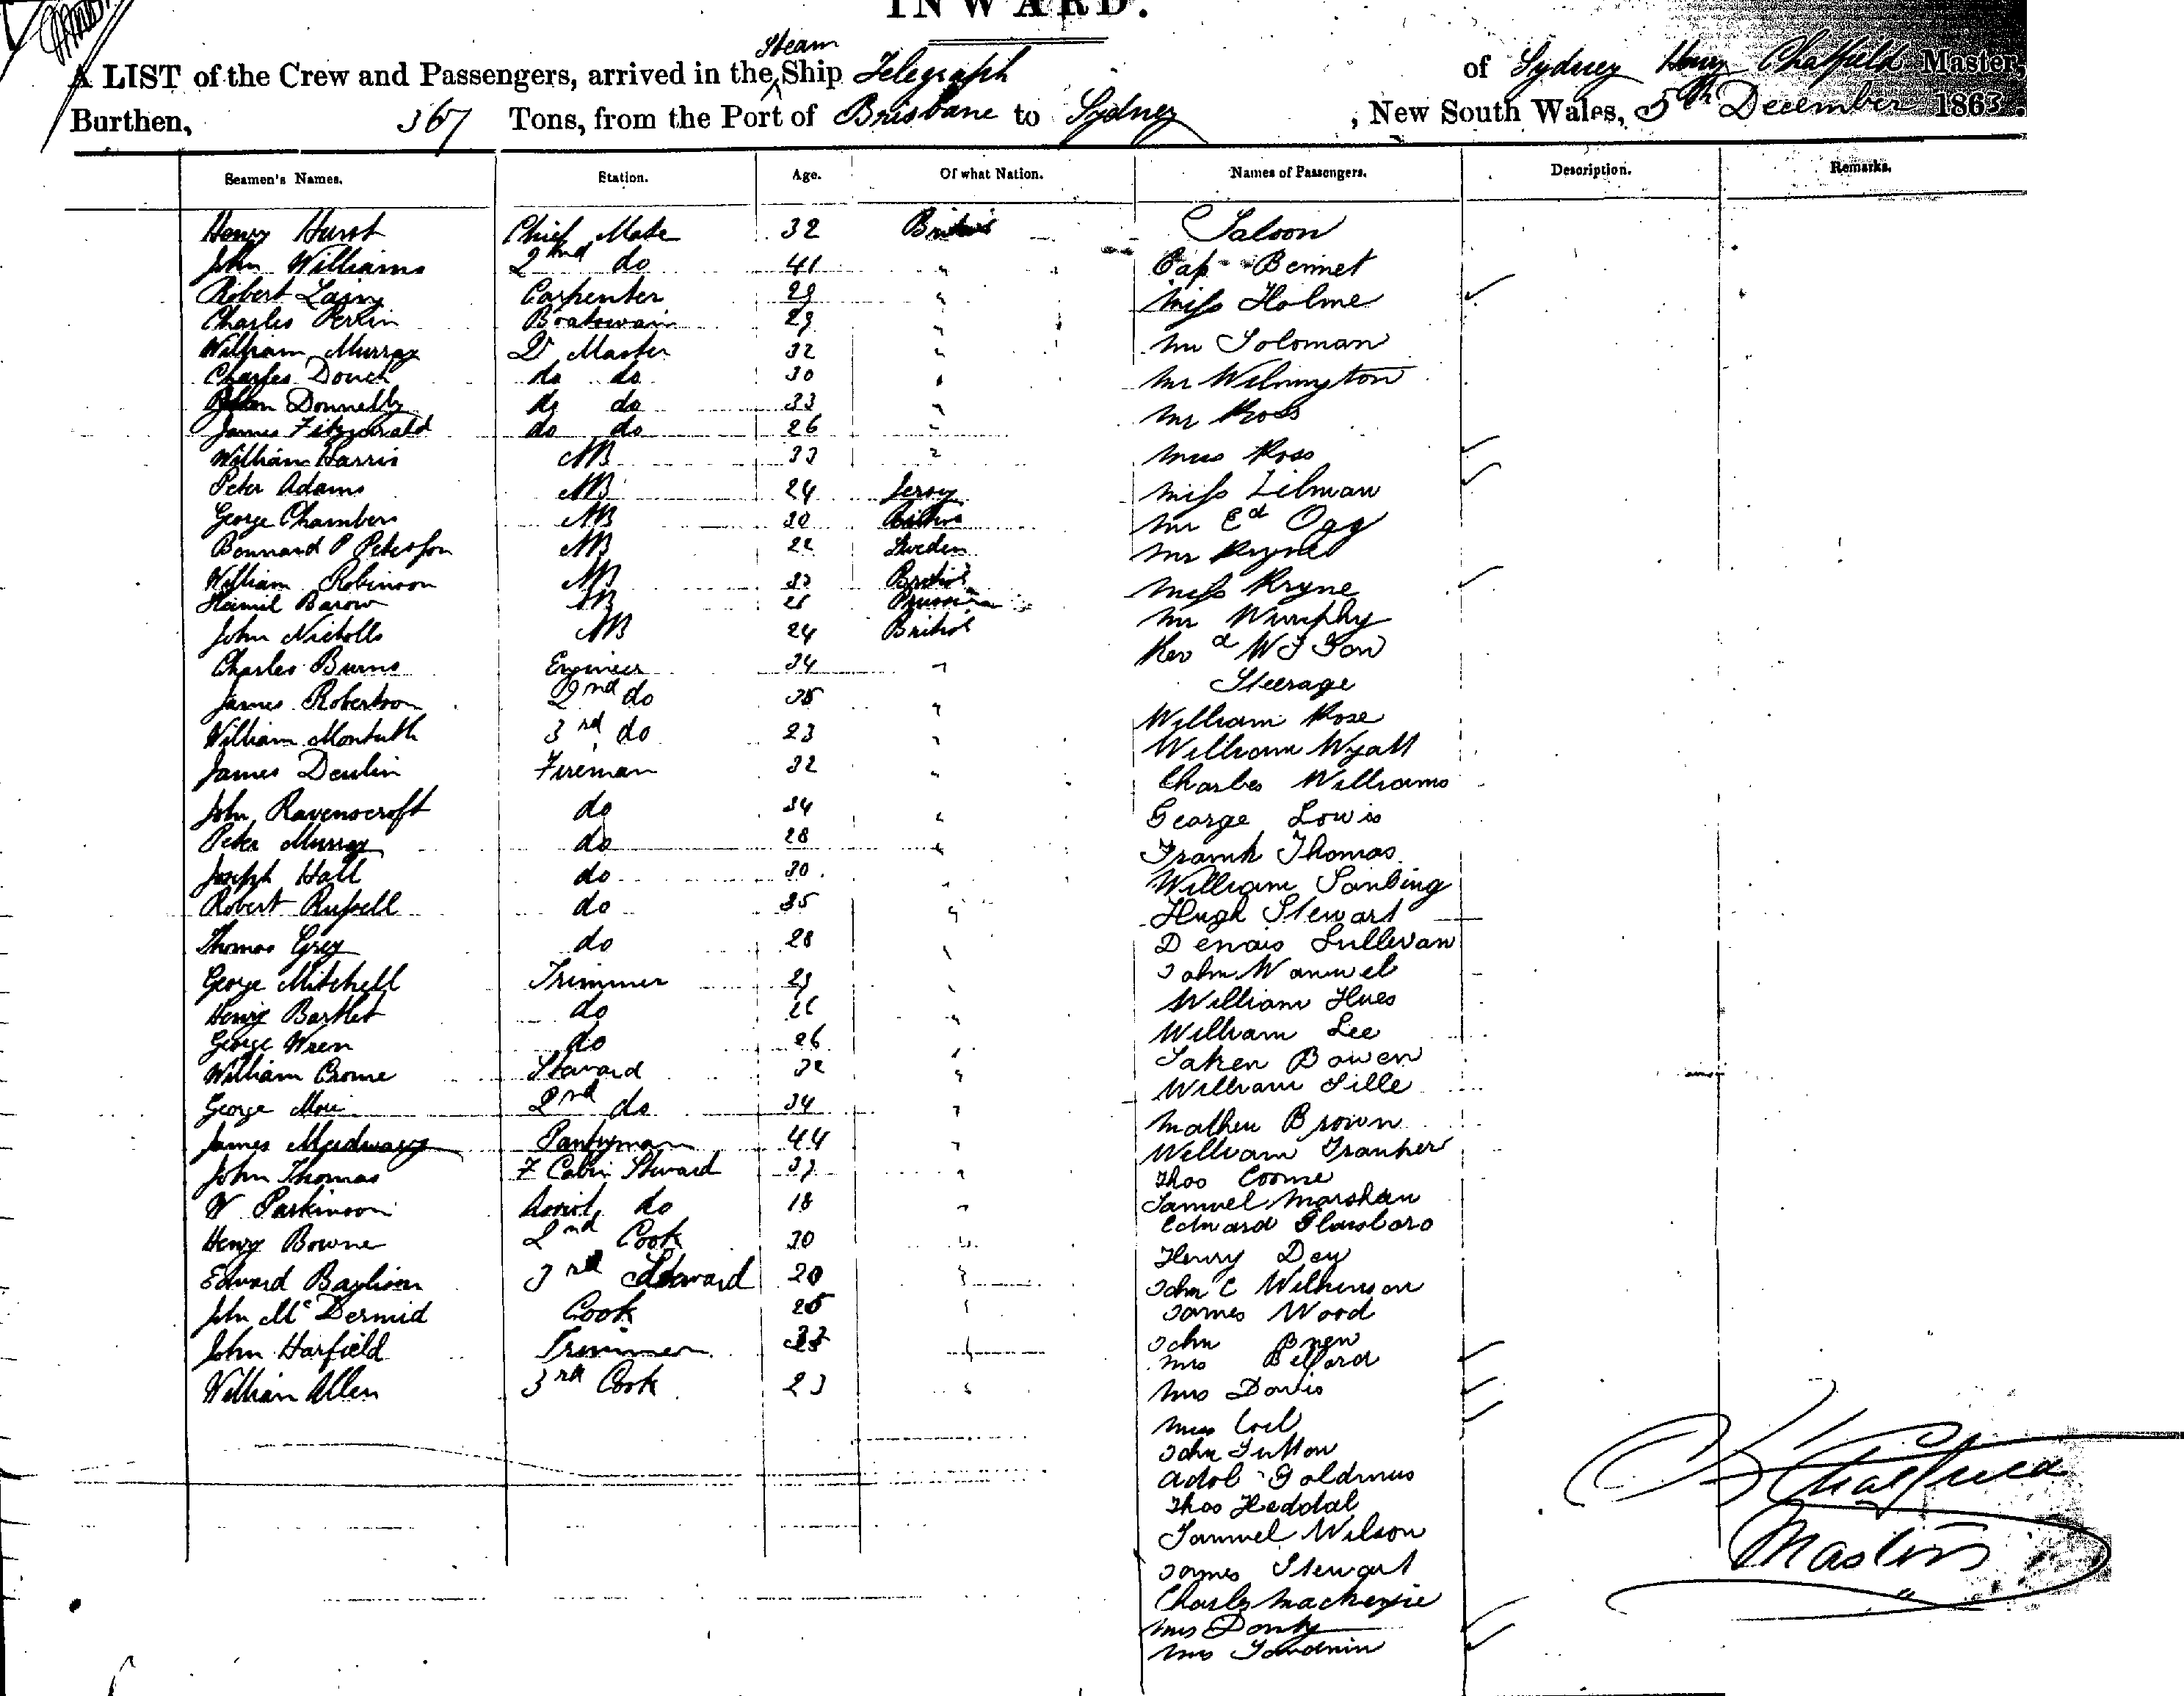 INWARD.
A LIST of the Crew and Passengers, arrived in the Steam Ship Telegraph of Sydney Henry Chatfield Master,
Burthen, 367 Tons, from the Port of Brisbane to Sydney, New South Wales, 5th December 1863.
Seamen's Names. Station. Age. Of what Nation. Names of Passengers. Description. Remarks.
Henry Hurst Chief Mate 32 British Saloon
John Williams 2nd do 41 " Cap Bennet
Robert Laing Carpenter 29 " Miss Holme
Charles Perkin Boatswain 29 " Mr Soloman
William Murray Qr Master 32 " Mr Wilmington
Charles Douch do do 30 " Mr Ross
Donnelly do do 33 "
James Fitzgerald do do 26 "
William Harris AB 33 " Mrs Ross
Peter Adams AB 24 Jersey Miss Lilman
George Chambers AB 30 British Mr Ed Ogg
Bonnard P Petersson AB 22 Sweden Mr Kryne
William Robinson AB British Miss Kryne
Barow AB Prussia Mr Murphy
John Nicholls AB 24 British Revd W J
Charles Burns Engineer 34 " Steerage
James Robertson 2nd do 35 " William Rose
William Montuth 3rd do 23 " William Wyatt
James Deulin Fireman 32 " Charles Williams
John Ravenscroft do 34 " George Lowis
Peter Murray do 28 " Frank Thomas
Joseph Hall do 30 " William
Robert Russell do 35 " Hugh Stewart
Thomas Grey do 28 " Denais Sullivan
George Mitchell Trimmer 29 " John
Henry Bartlet do 26 " William Hues
George Wren do 26 " William Lee
William Crome Steward 32 " Bowen
George 2nd do 34 " William Sille
James Pantryman 44 " Mathew Brown
John Thomas F Cabin Steward " William
W Parkinson Assist do 18 " Thos Coome
Samuel Marshan
Edward
Henry Bowne 2nd Cook 30 " Henry Dey
Edward 3rd Steward 20 " John C Wilkinson
John McDermid Cook 25 " James Wood
John Harfield Trimmer " John
Mrs Belford
William Allen 3rd Cook 23 " Mrs Davis
John Sutton
Thos Heddal
Samuel Wilson
James Stewart
Charles Mackenzie
Mrs
Mrs
H Chatfield
Master